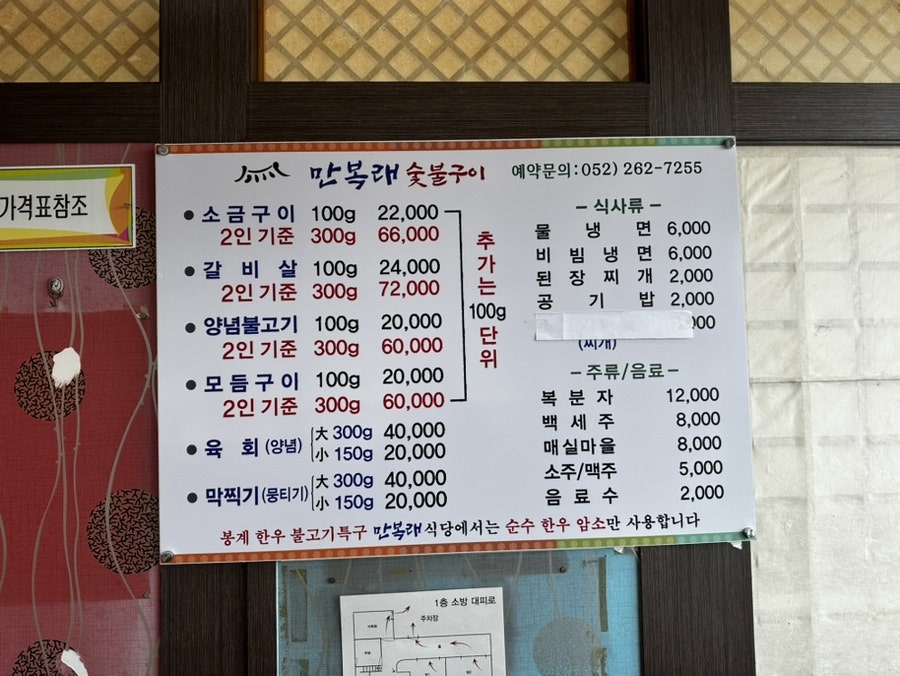 가격표참조
만복래 숯불구이 예약문의:052) 262-7255
● 소금구이 100g 22,000
2인 기준 300g 66,000
● 갈비살 100g 24,000
2인 기준 300g 72,000
● 양념불고기 100g 20,000
2인 기준 300g 60,000
● 모듬구이 100g 20,000
2인 기준 300g 60,000
추가는 100g 단위
● 육회 (양념) 大 300g 40,000
小 150g 20,000
● 막찍기(뭉티기) 大 300g 40,000
小 150g 20,000
– 식사류 –
물냉면 6,000
비빔냉면 6,000
된장찌개 2,000
공기밥 2,000
(찌개)
– 주류/음료 –
복분자 12,000
백세주 8,000
매실마을 8,000
소주/맥주 5,000
음료수 2,000
봉계 한우 불고기특구 만복래식당에서는 순수 한우 암소만 사용합니다
1층 소방 대피로
주차장